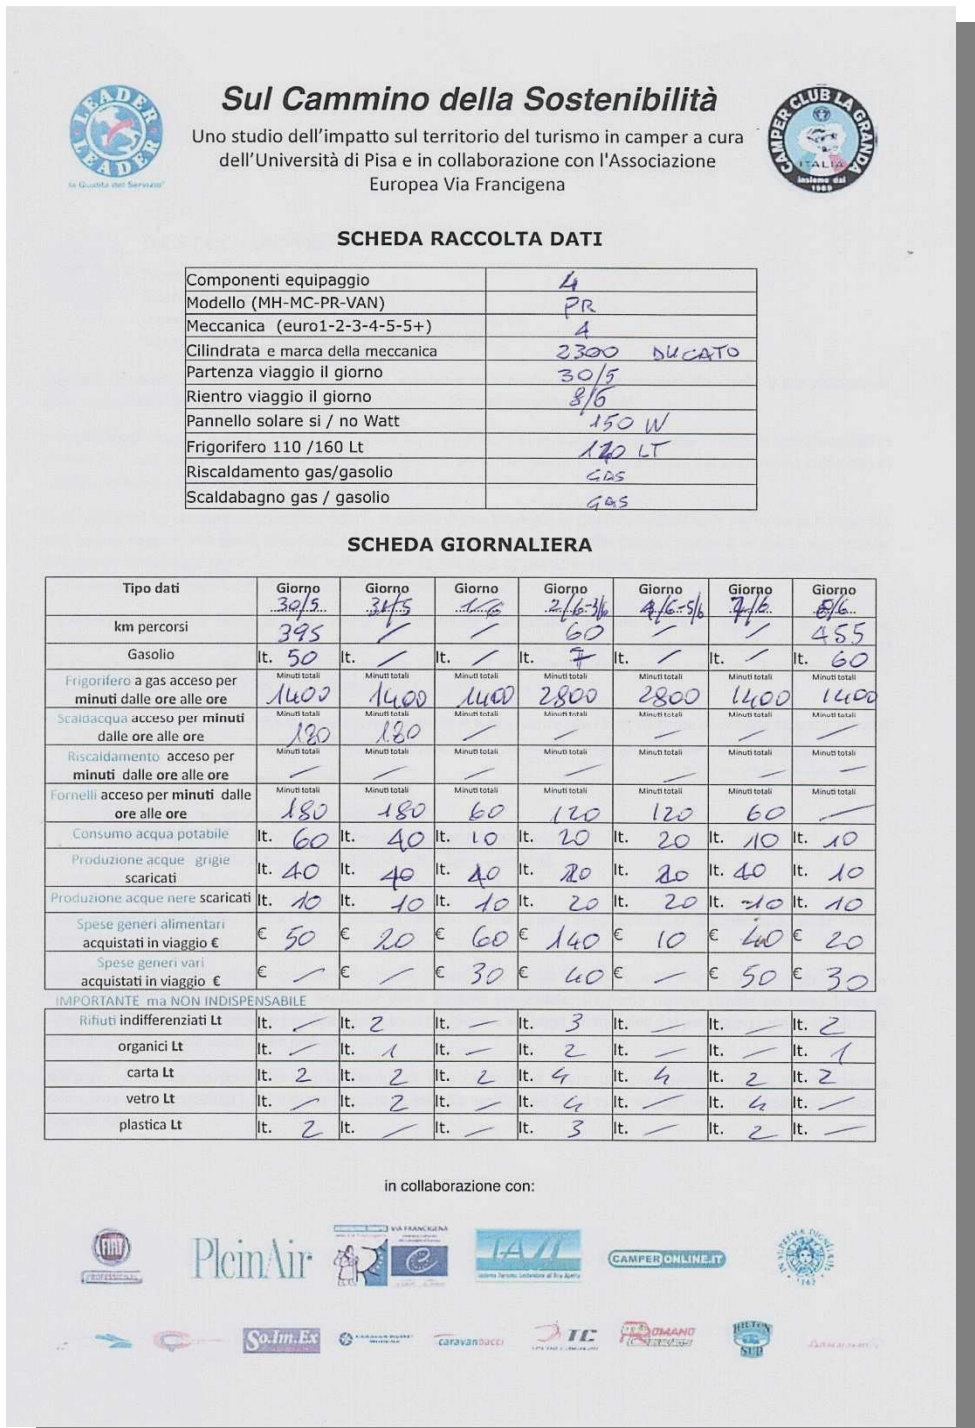 LEADER
LEADER
la Qualità del Servizio
Sul Cammino della Sostenibilità
Uno studio dell'impatto sul territorio del turismo in camper a cura
dell'Università di Pisa e in collaborazione con l'Associazione
Europea Via Francigena
CAMPER CLUB LA GRANDA
ITALIA
insieme dal
1989
SCHEDA RACCOLTA DATI
Componenti equipaggio 4
Modello (MH-MC-PR-VAN) PR
Meccanica (euro1-2-3-4-5-5+) 4
Cilindrata e marca della meccanica 2300 DUCATO
Partenza viaggio il giorno 30/5
Rientro viaggio il giorno 8/6
Pannello solare si / no Watt 150 W
Frigorifero 110 /160 Lt LT
Riscaldamento gas/gasolio GAS
Scaldabagno gas / gasolio GAS
SCHEDA GIORNALIERA
Tipo dati Giorno Giorno Giorno Giorno Giorno Giorno Giorno
30/5 31/5 1/6 2/6-3/6 /6-5/6 /6 /6
km percorsi 395 / / 60 / / 455
Gasolio lt. 50 lt. / lt. / lt. 7 lt. / lt. / lt. 60
Frigorifero a gas acceso per Minuti totali Minuti totali Minuti totali Minuti totali Minuti totali Minuti totali Minuti totali
minuti dalle ore alle ore 1400 1400 1400 2800 2800 1400 1400
Scaldacqua acceso per minuti Minuti totali Minuti totali Minuti totali Minuti totali Minuti totali Minuti totali Minuti totali
dalle ore alle ore 180 180 – – – – –
Riscaldamento acceso per Minuti totali Minuti totali Minuti totali Minuti totali Minuti totali Minuti totali Minuti totali
minuti dalle ore alle ore – – – – – – –
Fornelli acceso per minuti dalle Minuti totali Minuti totali Minuti totali Minuti totali Minuti totali Minuti totali Minuti totali
ore alle ore 180 180 60 120 120 60 –
Consumo acqua potabile lt. 60 lt. 40 lt. 10 lt. 20 lt. 20 lt. 10 lt. 10
Produzione acque grigie
scaricati lt. 40 lt. 40 lt. 10 lt. 20 lt. 20 lt. 10 lt. 10
Produzione acque nere scaricati lt. 10 lt. 10 lt. 10 lt. 20 lt. 20 lt. 10 lt. 10
Spese generi alimentari
acquistati in viaggio € € 50 € 20 € 60 € 140 € 10 € 40 € 20
Spese generi vari
acquistati in viaggio € € – € – € 30 € 40 € – € 50 € 30
IMPORTANTE ma NON INDISPENSABILE
Rifiuti indifferenziati Lt lt. – lt. 2 lt. – lt. 3 lt. – lt. – lt. 2
organici Lt lt. – lt. 1 lt. – lt. 2 lt. – lt. – lt. 1
carta Lt lt. 2 lt. 2 lt. 2 lt. 4 lt. 4 lt. 2 lt. 2
vetro Lt lt. – lt. 2 lt. – lt. 4 lt. – lt. 4 lt. –
plastica Lt lt. 2 lt. – lt. – lt. 3 lt. – lt. 2 lt. –
in collaborazione con:
FIAT
PROFESSIONAL
PleinAir
VIA FRANCIGENA
CAMPERONLINE.IT
So.Im.Ex
caravanbacci
TC
ROMANO
HILTON
SUD